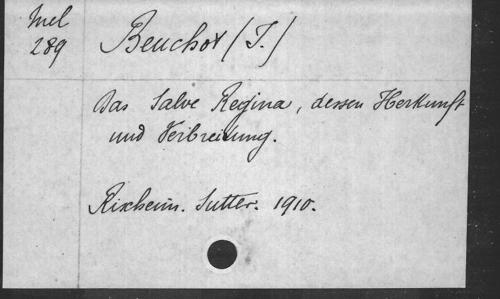 Mel
289
Beuchot (J.)
Das Salve Regina, dessen Herkunft
und Verbreitung.
Rixheim. Sutter. 1910.